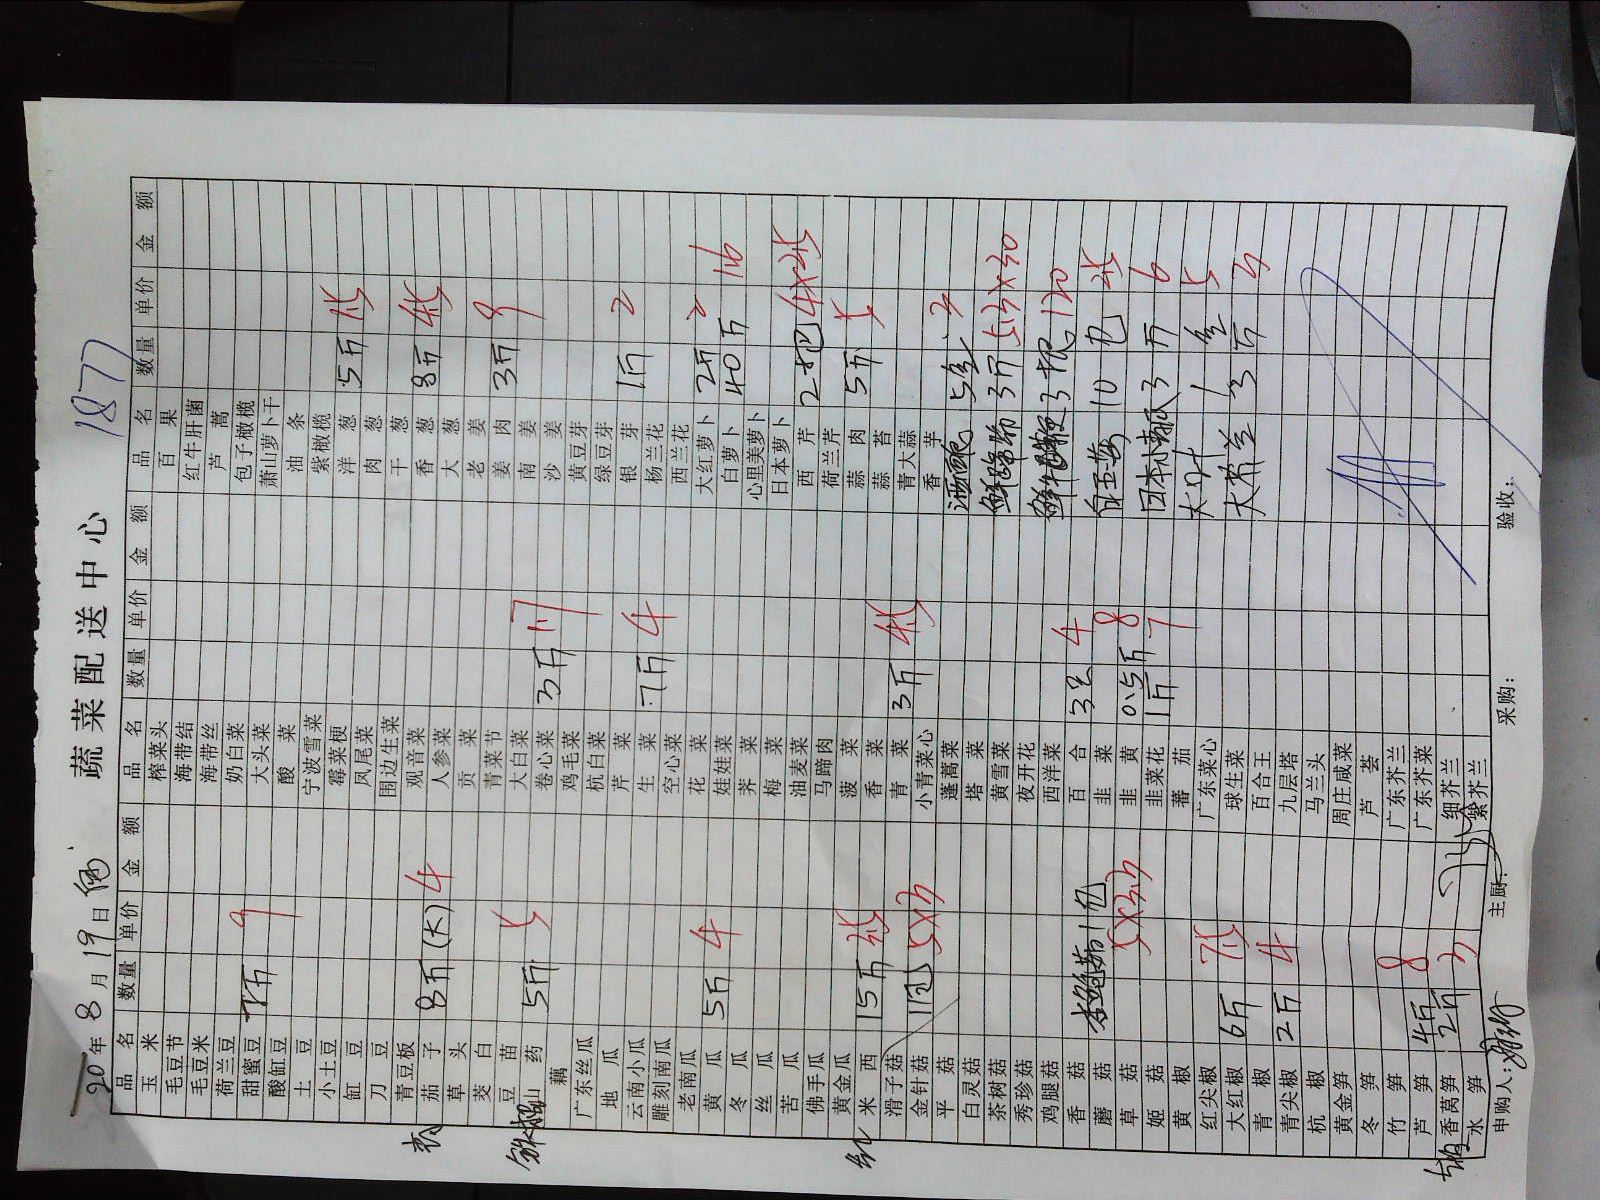 1877
蔬菜配送中心
20年8月19日
品名 数量 单价 金额 品名 数量 单价 金额 品名 数量 单价 金额
玉米 榨菜头 百果
毛豆节 海带结 红牛肝菌
毛豆米 海带丝 芦蒿
荷兰豆 奶白菜 包子橄榄
甜蜜豆 2斤 9 大头菜 萧山萝卜干
酸缸豆 酸菜 油条
土豆 宁波雪菜 紫橄榄
小土豆 霉菜梗 洋葱 5斤 1.5
缸豆 凤尾菜 肉葱
刀豆 围边生菜 干葱
青豆板 观音菜 香葱 8斤 4.5
茄子 8斤(大) 4 人参菜 大葱
草头 贡菜 老姜 3斤 9
茭白 青菜节 姜肉
豆苗 大白菜 南姜
山药 5斤 5 卷心菜 3斤 1.7 沙姜
藕 鸡毛菜 黄豆芽
广东丝瓜 杭白菜 绿豆芽
地瓜 芹菜 银芽 1斤 2
云南小瓜 生菜 7斤 4 杨兰花
雕刻南瓜 空心菜 西兰花
老南瓜 花菜 大红萝卜 2斤 2
黄瓜 5斤 4 娃娃菜 白萝卜 40斤 1.6
冬瓜 荠菜 心里美萝卜
丝瓜 梅菜 日本萝卜
苦瓜 油麦菜 西芹 2把 4×2.5
佛手瓜 马蹄肉 荷兰芹
黄金瓜 菠菜 蒜肉 5斤 5
红 米西 15斤 2.5 香菜 蒜苔
滑子菇 青菜 3斤 4.5 青大蒜
金针菇 1包 5×3 小青菜心 香芋
平菇 蓬蒿菜 5盒 3
白灵菇 塔菜 3斤 5.3×30
茶树菇 黄雪菜
秀珍菇 夜开花 3根 120
鸡腿菇 西洋菜
香菇 1包 百合 3包 4 10包 2.5
蘑菇 5×3.3 韭菜
草菇 韭黄 0.5斤 8 3斤 6
姬菇 韭菜花 1斤 7
黄椒 蕃茄 大叶 1盒 5
红尖椒 广东菜心
大红椒 6斤 7.5 球生菜 3斤 3
青椒 百合王
青尖椒 2斤 4 九层塔
杭椒 马兰头
黄金笋 周庄咸菜
冬笋 芦荟
竹笋 广东芥兰
芦笋 4斤 8 广东芥菜
香莴笋 2斤 3 细芥兰
水笋 紫芥兰
申购人： 主厨： 采购： 验收：